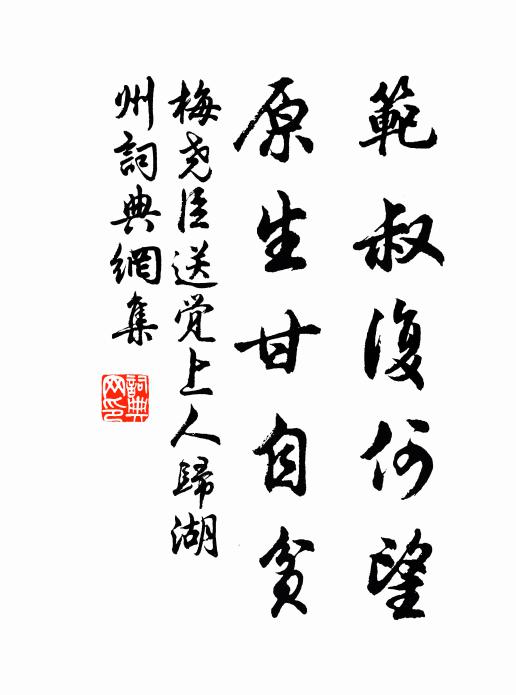 範叔復何望
原生甘自貧
梅尧臣送覚上人歸湖
州詞典網集
詞典
网印